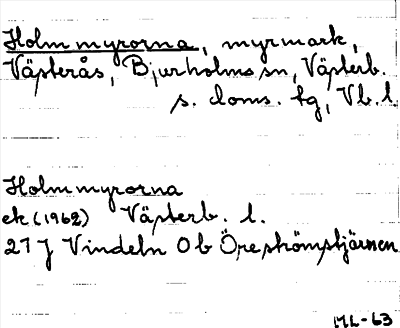 Holmmyrorna, myrmark,
Västerås, Bjurholms sn, Västerb.
s. doms. tg, Vb. l.
Holmmyrorna
ek (1962) Västerb. l.
21 J Vindeln 0 b Öreströmstjärnen
ML-63